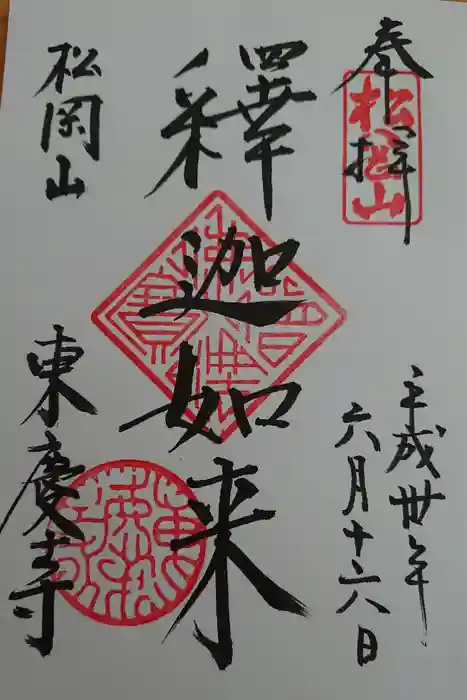 奉拝
松岡山
平成卅年
六月十六日
釋迦如来
佛法僧寳
松岡山
東慶寺